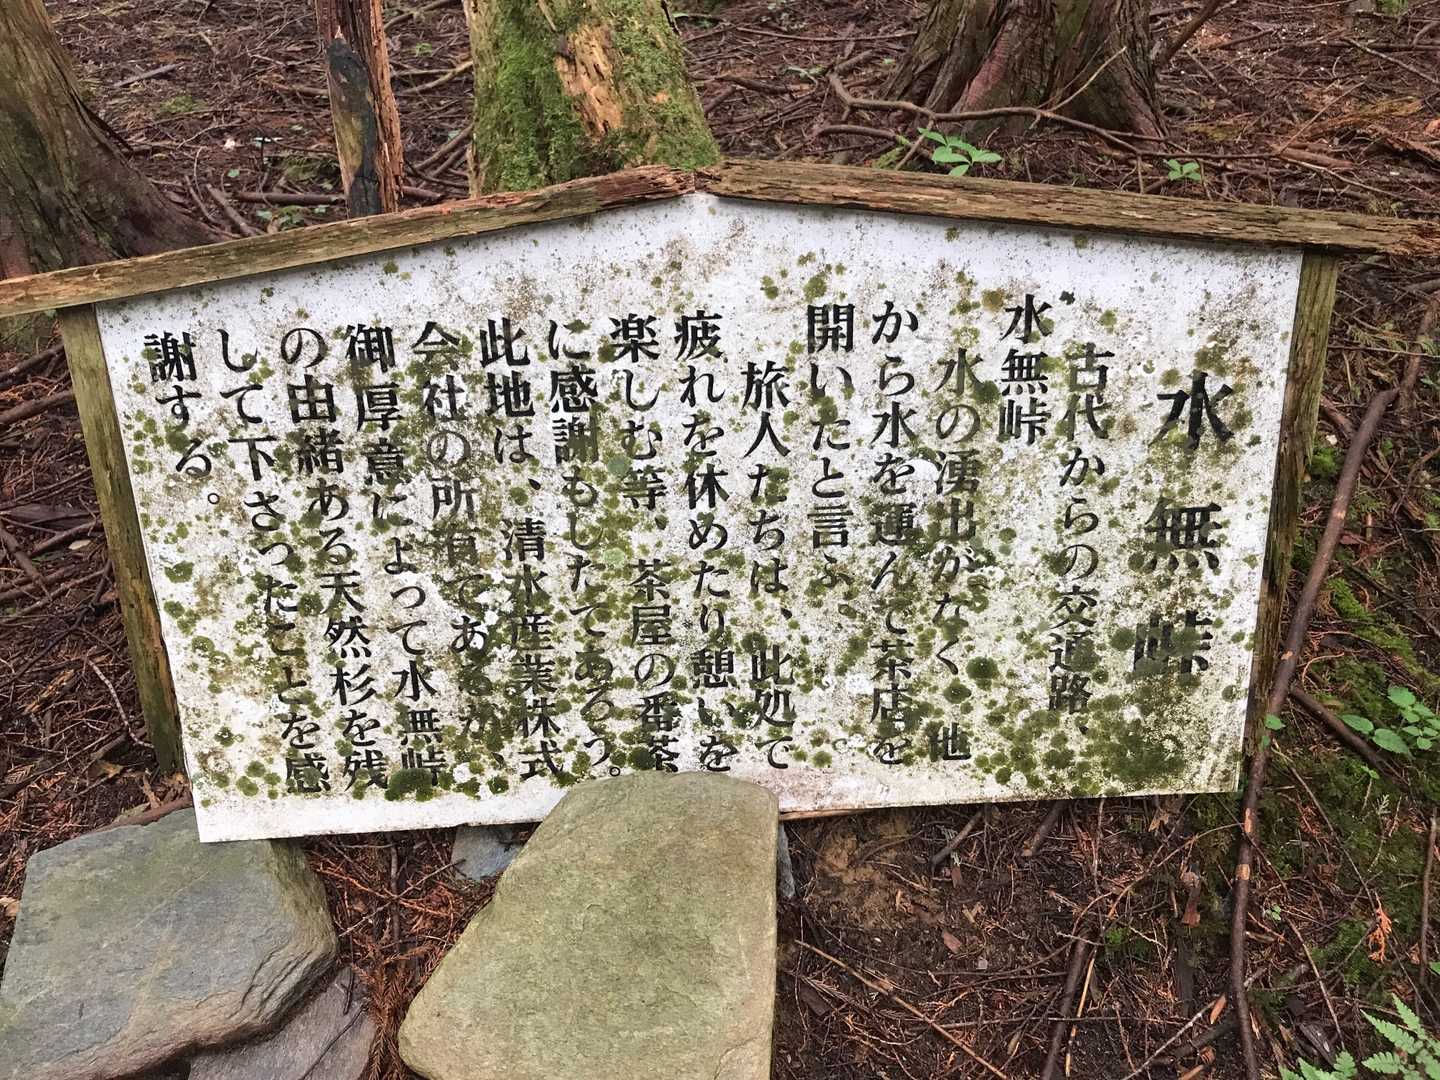 水無峠
古代からの交通路、
水無峠
水の湧出がなく、他
から水を運んで茶店を
開いたと言ふ。
旅人たちは、此処で
疲れを休めたり憩いを
楽しむ等、茶屋の番茶
に感謝もしたであろう。
此地は、清水産業株式
会社の所有であるが、
御厚意によって水無峠
の由緒ある天然杉を残
して下さったことを感
謝する。